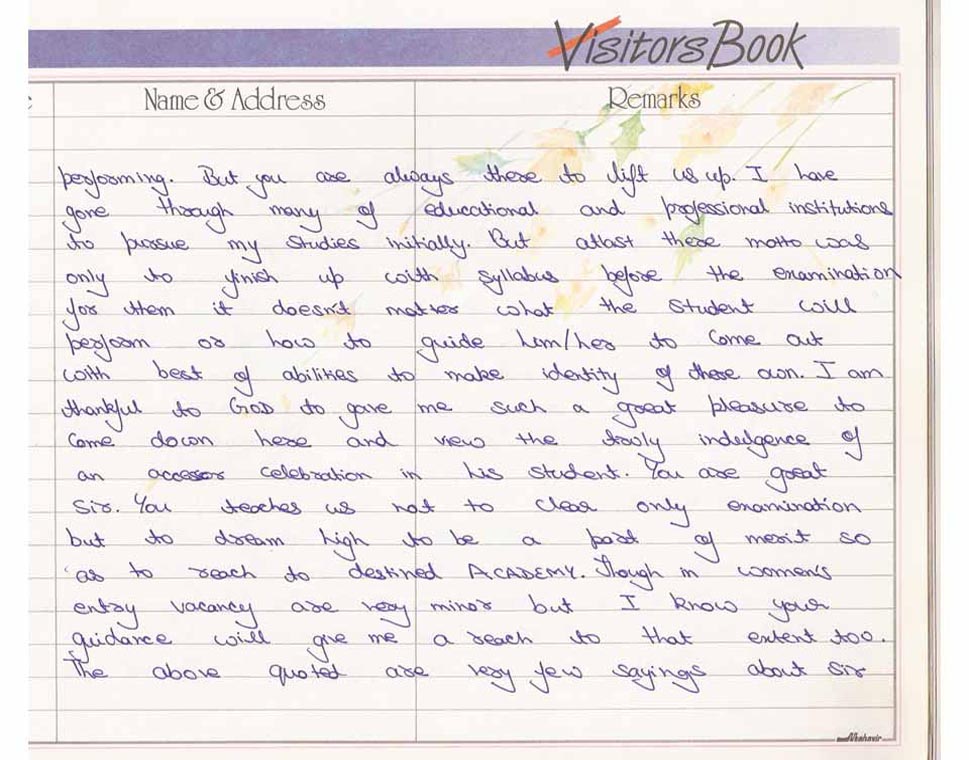 Visitors Book
Name & Address
Remarks
performing. But you are always there to lift us up. I have
gone through many of educational and professional institutions
to pursue my studies initially. But atlast there motto was
only to finish up with syllabus before the examination
for them it doesn't matter what the student will
perform or how to guide him/her to come out
with best of abilities to make identity of there own. I am
thankful to GOD to gave me such a great pleasure to
come down here and view the truly indulgence of
an accesor celebration in his student. You are great
Sir. You teaches us not to clear only examination
but to dream high to be a part of merit so
as to reach to destined ACADEMY. Though in women's
entry vacancy are very minor but I know your
guidance will give me a reach to that extent too.
The above quoted are very few sayings about Sir
Mahavir